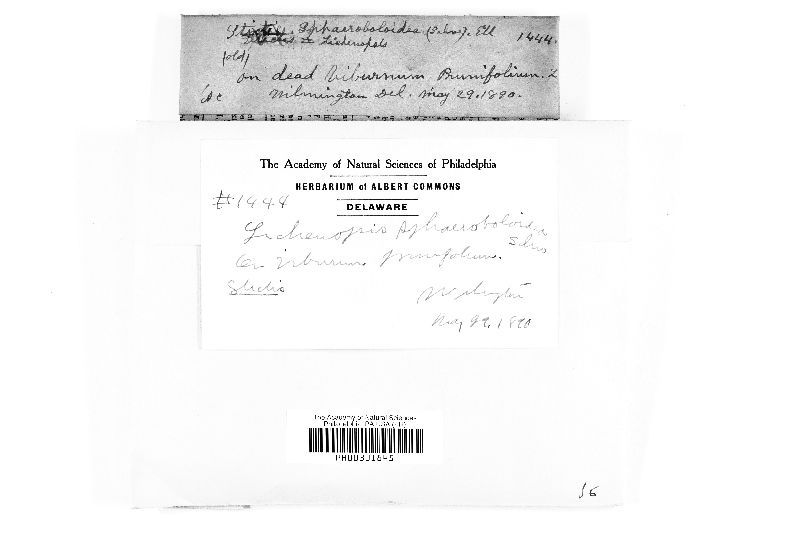 Stictis. Sphaeroboloidea (Schw). Ell 1444.
Lichenopsis
(old)
on dead Viburnum Prunifolium. L
Wilmington Del. May 29. 1890.
The Academy of Natural Sciences of Philadelphia
HERBARIUM of ALBERT COMMONS
DELAWARE
#1444
Lichenopsis sphaeroboloidea
Schw
On Viburnum prunifolium.
Stictis
Wilmington
May 29, 1890
The Academy of Natural Sciences
Philadelphia PA USA (PH)
56